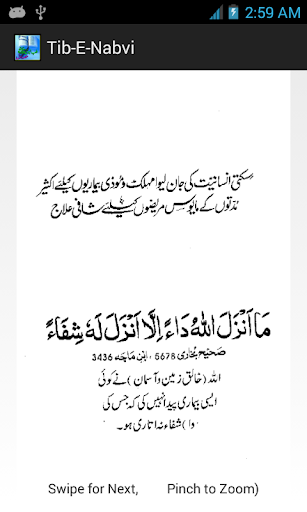 2:59 AM
Tib-E-Nabvi
سسکتی انسانیت کی جان لیوا مہلکت و موذی بیماریوں کیلئے اکثیر
مدتوں کے مایوس مریضوں کیلئے شافی علاج
مَا اَنْزَلَ اللهُ دَاءً اِلَّا اَنْزَلَ لَهٗ شِفَاءً
صحیح بخاری 5678 ، ابن ماجه 3436
اللہ (خالق زمین و آسمان) نے کوئی
ایسی بیماری پیدا نہیں کی کہ جس کی
دوا) شفاء نہ اتاری ہو۔
Swipe for Next, Pinch to Zoom)